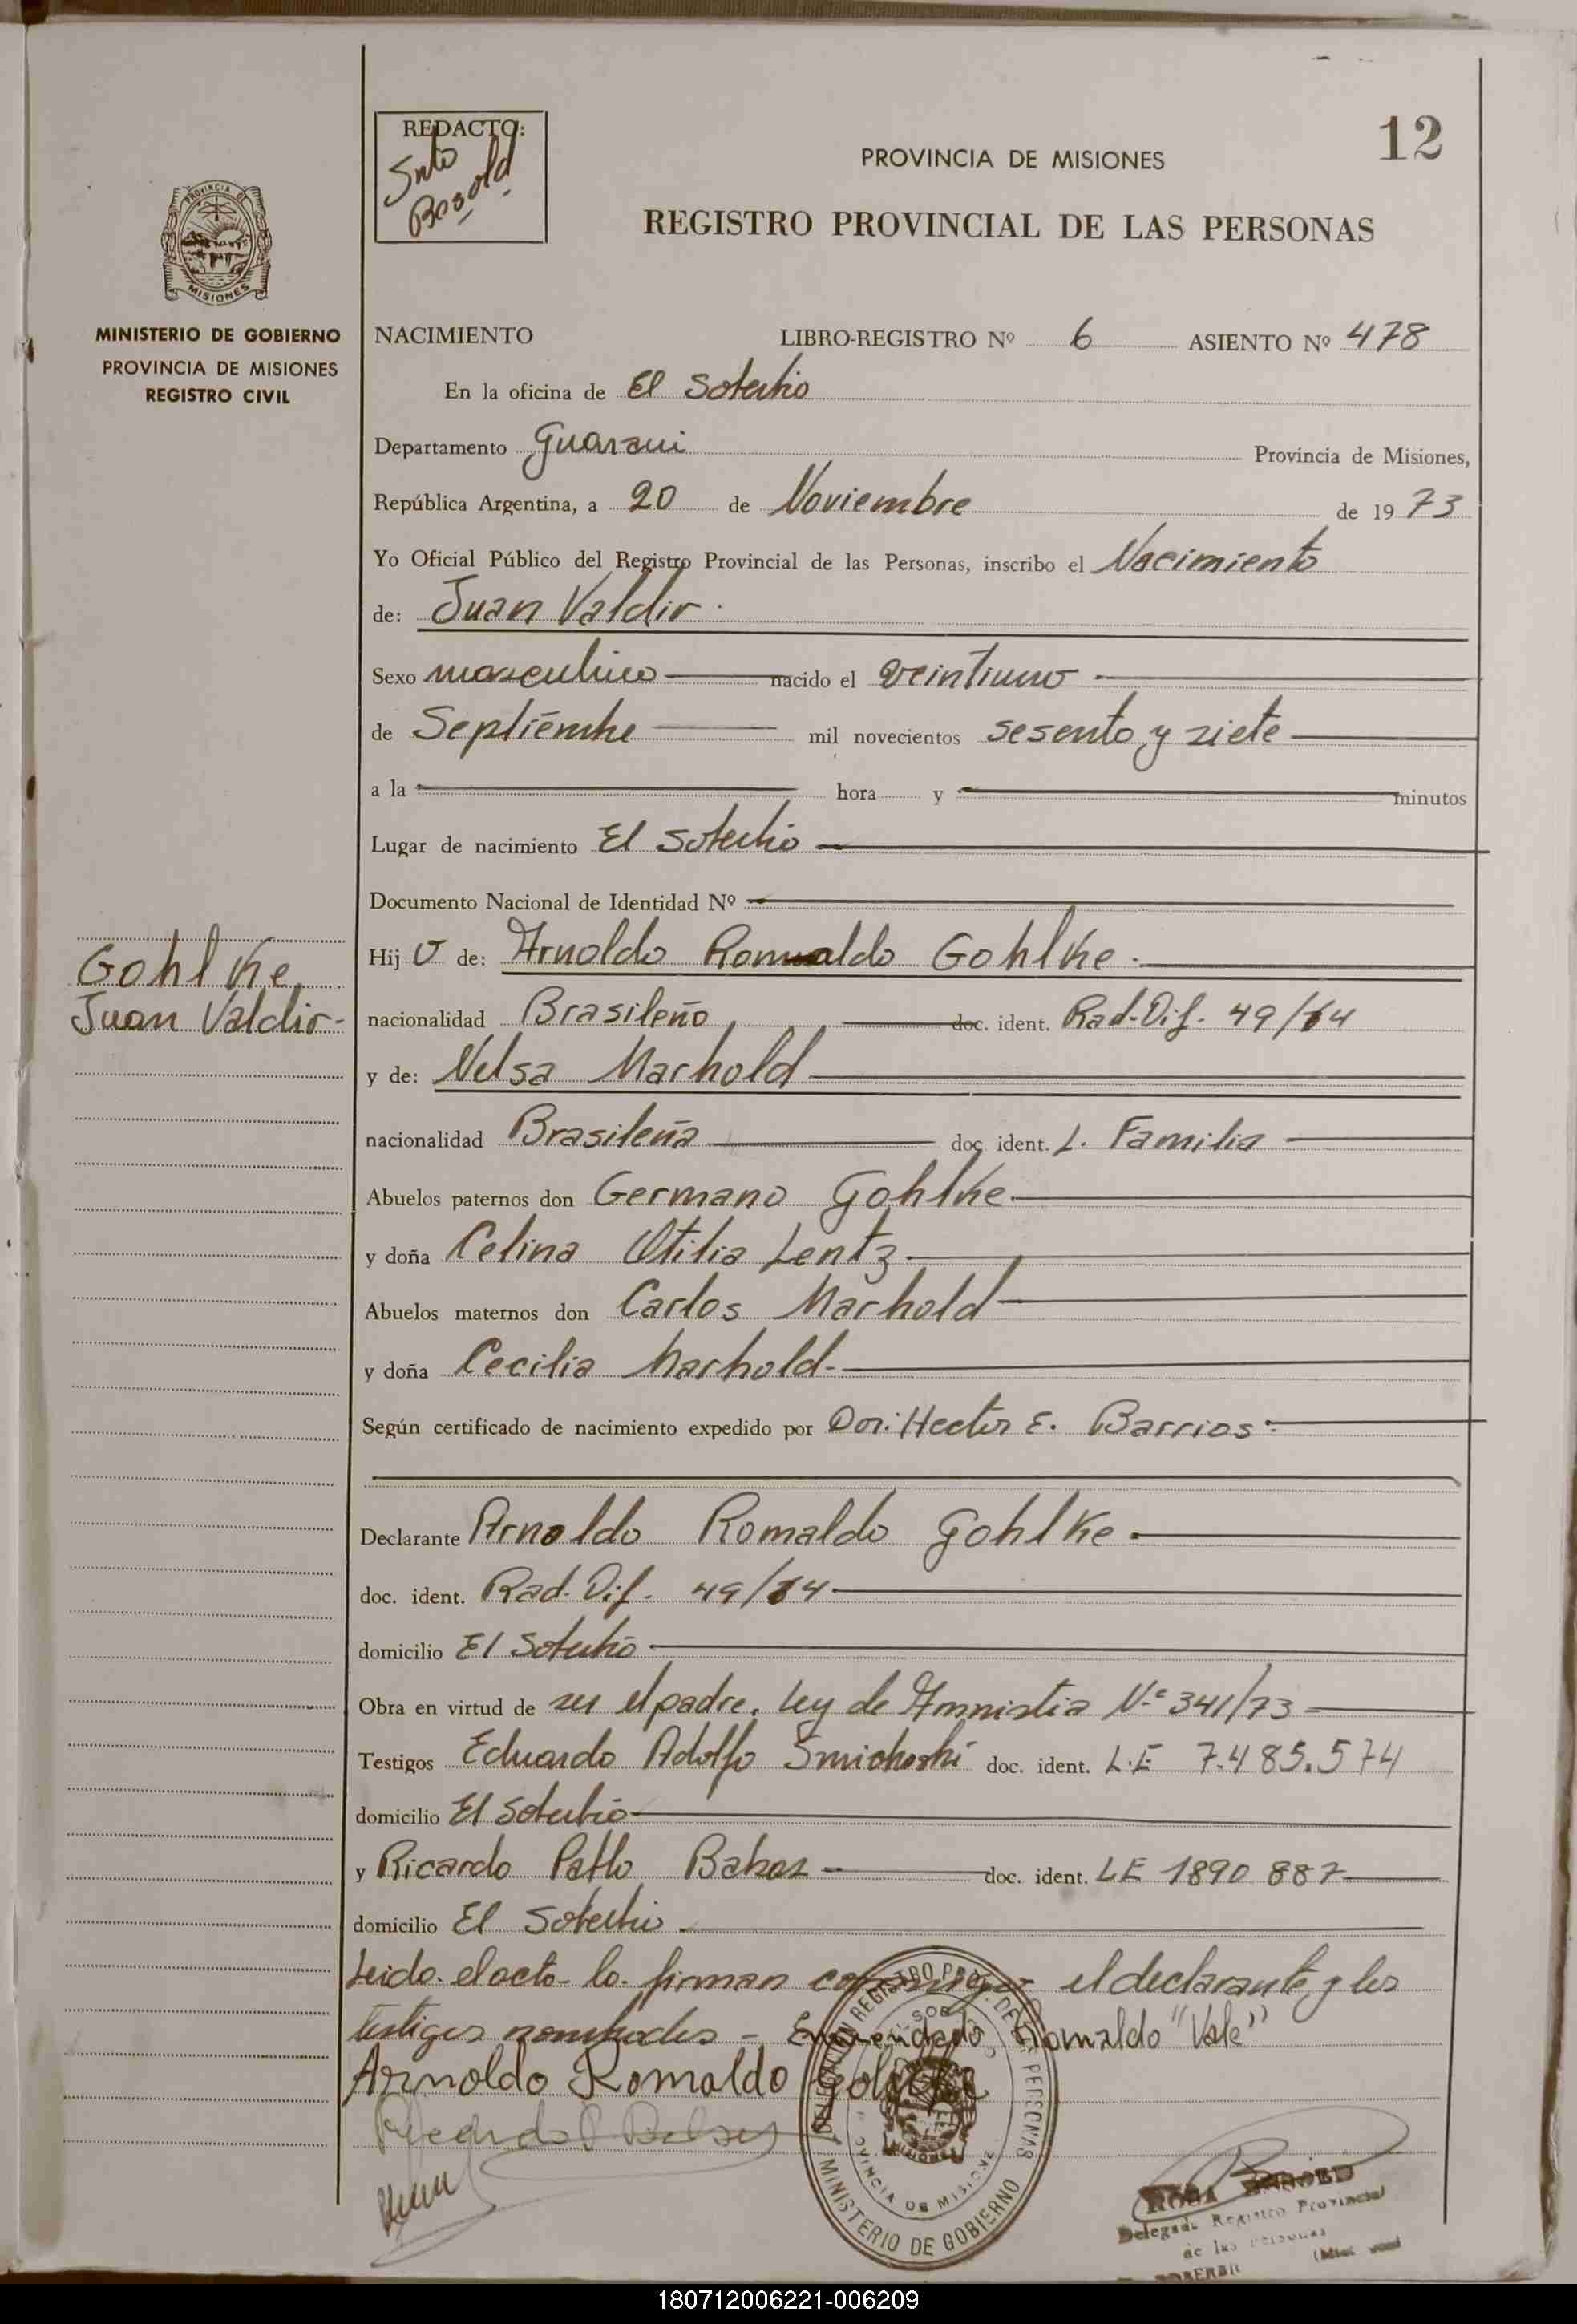 12
REDACTO:
Bosold
PROVINCIA DE MISIONES
REGISTRO PROVINCIAL DE LAS PERSONAS
PROVINCIA DE
MISIONES
MINISTERIO DE GOBIERNO
PROVINCIA DE MISIONES
REGISTRO CIVIL
NACIMIENTO LIBRO-REGISTRO Nº 6 ASIENTO Nº 478
En la oficina de El Soberbio
Departamento Guarani Provincia de Misiones,
República Argentina, a 20 de Noviembre de 19 73
Yo Oficial Público del Registro Provincial de las Personas, inscribo el Nacimiento
de: Juan Valdir.
Sexo masculino nacido el veintiuno
de Septiembre mil novecientos sesenta y siete
a la hora y minutos
Lugar de nacimiento El Soberbio
Documento Nacional de Identidad Nº
Gohlke
Juan Valdir-
Hij o de: Arnoldo Romualdo Gohlke.
nacionalidad Brasileño doc. ident. Rad. Dif. 49/64
y de: Nelsa Marhold
nacionalidad Brasileña doc. ident. L. Familia
Abuelos paternos don Germano Gohlke
y doña Celina Otilia Lentz
Abuelos maternos don Carlos Marhold
y doña Cecilia Marhold-
Según certificado de nacimiento expedido por Hector E. Barrios
Declarante Arnoldo Romaldo Gohlke.
doc. ident. Rad. Dif. 49/64
domicilio El Soberbio
Obra en virtud de ser el padre. Ley de Amnistia Nº 341/73
Testigos Eduardo Adolfo doc. ident. L.E 7.485.574
domicilio El Soberbio
y Ricardo Pablo doc. ident. LE 1890 887
domicilio El Soberbio
Leido el acto lo firman conmigo el declarante y los
testigos nombrados - Enmendado Romaldo "Vale"
Arnoldo Romaldo Gohlke
DELEGACION REGISTRO PROV. DE LAS PERSONAS
MINISTERIO DE GOBIERNO
PROVINCIA DE MISIONES
MISIONES
ROSA BOSOLD
Delegada Registro Provincial
de las Personas
180712006221-006209